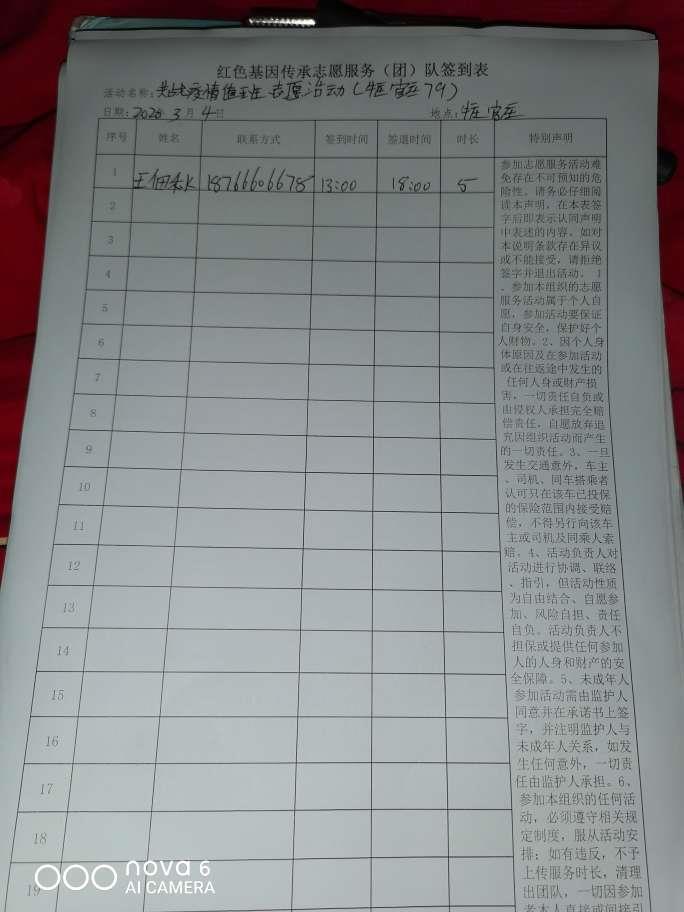 红色基因传承志愿服务（团）队签到表
活动名称：共战疫情值班志愿活动（牛区官庄79）
日期：2020年3月4日 地点：牛官庄
序号 姓名 联系方式 签到时间 签退时间 时长 特别声明
1 王佃 18766606678 13:00 18:00 5
2
3
4
5
6
7
8
9
10
11
12
13
14
15
16
17
18
19
参加志愿服务活动难
免存在不可预知的危
险性。请务必仔细阅
读本声明。在本表签
字后即表示认同声明
中表述的内容。如对
本说明条款存在异议
或不能接受，请拒绝
签字并退出活动。 1
、参加本组织的志愿
服务活动属于个人自
愿，参加活动要保证
自身安全，保护好个
人财物。2、因个人身
体原因及在参加活动
或在往返途中发生的
任何人身或财产损
害，一切责任自负或
由侵权人承担完全赔
偿责任，自愿放弃追
究因组织活动而产生
的一切责任。3、一旦
发生交通意外，车主
、司机、同车搭乘者
认可只在该车已投保
的保险范围内接受赔
偿，不得另行向该车
主或司机及同乘人索
赔。4、活动负责人对
活动进行协调、联络
、指引，但活动性质
为自由结合、自愿参
加、风险自担、责任
自负。活动负责人不
担保或提供任何参加
人的人身和财产的安
全保障。5、未成年人
参加活动需由监护人
同意并在承诺书上签
字，并注明监护人与
未成年人关系，如发
生任何意外，一切责
任由监护人承担。6、
参加本组织的任何活
动，必须遵守相关规
定制度，服从活动安
排；如有违反，不予
上传服务时长，清理
出团队，一切因参加
者本人直接或间接引
nova 6
AI CAMERA